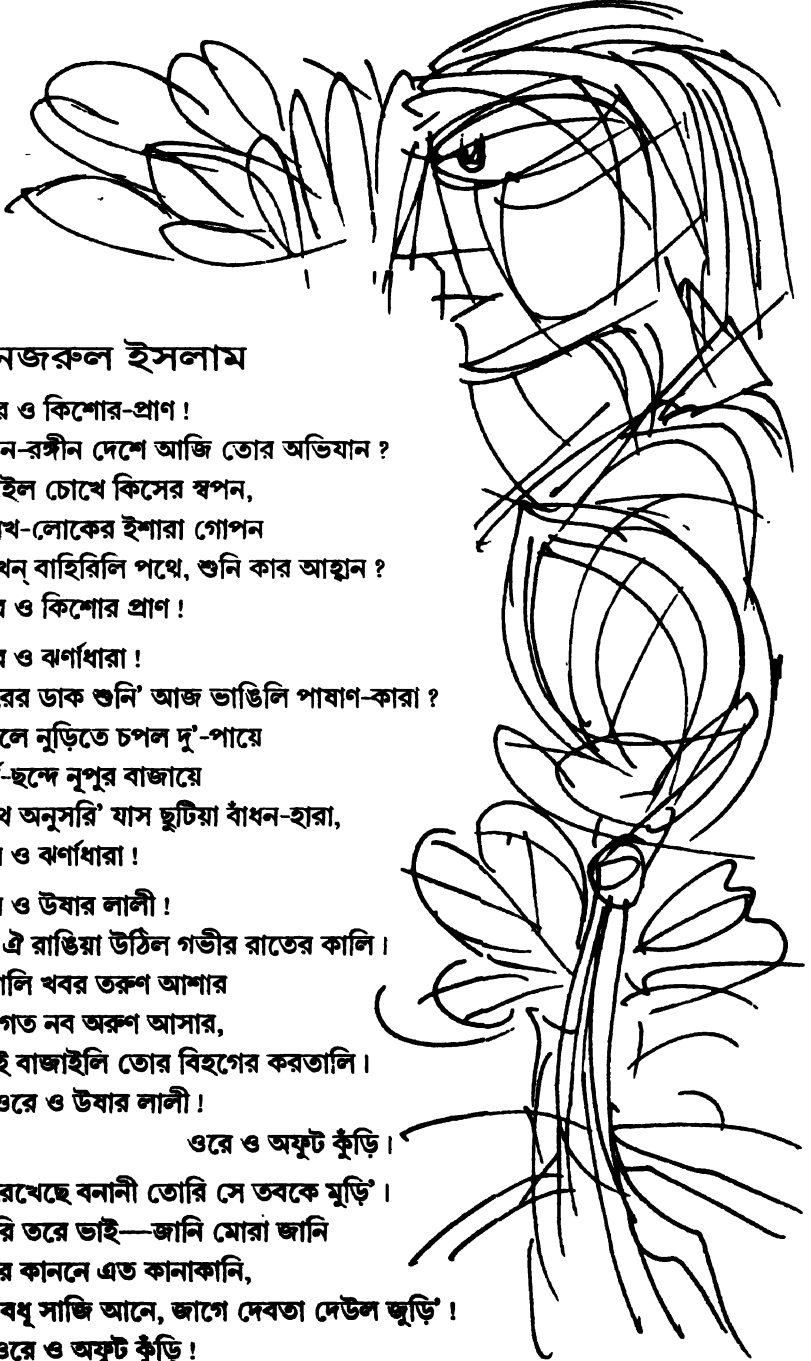 নজরুল ইসলাম
ও কিশোর-প্রাণ !
রঙ্গীন দেশে আজি তোর অভিযান ?
চোখে কিসের স্বপন,
লোকের ইশারা গোপন
বাহিরিলি পথে, শুনি কার আহ্বান ?
ও কিশোর প্রাণ !
ও ঝর্ণাধারা !
ডাক শুনি' আজ ভাঙিলি পাষাণ-কারা ?
নুড়িতে চপল দু'-পায়ে
ছন্দে নূপুর বাজায়ে
অনুসরি' যাস ছুটিয়া বাঁধন-হারা,
ও ঝর্ণাধারা !
ও উষার লালী !
ঐ রাঙিয়া উঠিল গভীর রাতের কালি।
খবর তরুণ আশার
গত নব অরুণ আসার,
বাজাইলি তোর বিহগের করতালি।
ওরে ও উষার লালী !
ওরে ও অফুট কুঁড়ি।
রেখেছে বনানী তোরি সে তবকে মুড়ি'।
তরে ভাই—জানি মোরা জানি
কাননে এত কানাকানি,
বধূ সাজি আনে, জাগে দেবতা দেউল জুড়ি' !
ওরে ও অফুট কুঁড়ি !